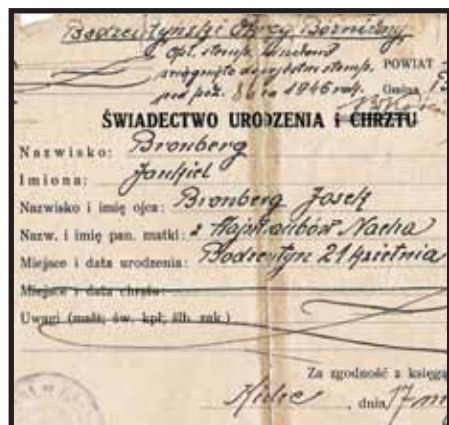 Bodzentyński Okręg Bożniczny
Opł. stemp.
POWIAT
1946
Gmina
ŚWIADECTWO URODZENIA i CHRZTU
Nazwisko: Bronberg
Imiona: Jankiel
Nazwisko i imię ojca: Bronberg Josek
Nazw. i imię pan. matki: z Nacha
Miejsce i data urodzenia: Bodzentyn 21 kwietnia
Miejsce i data chrztu:
Uwagi (małż. św. kpł. ślb. zak.)
Za zgodność z księgą
Kielce, dnia 17